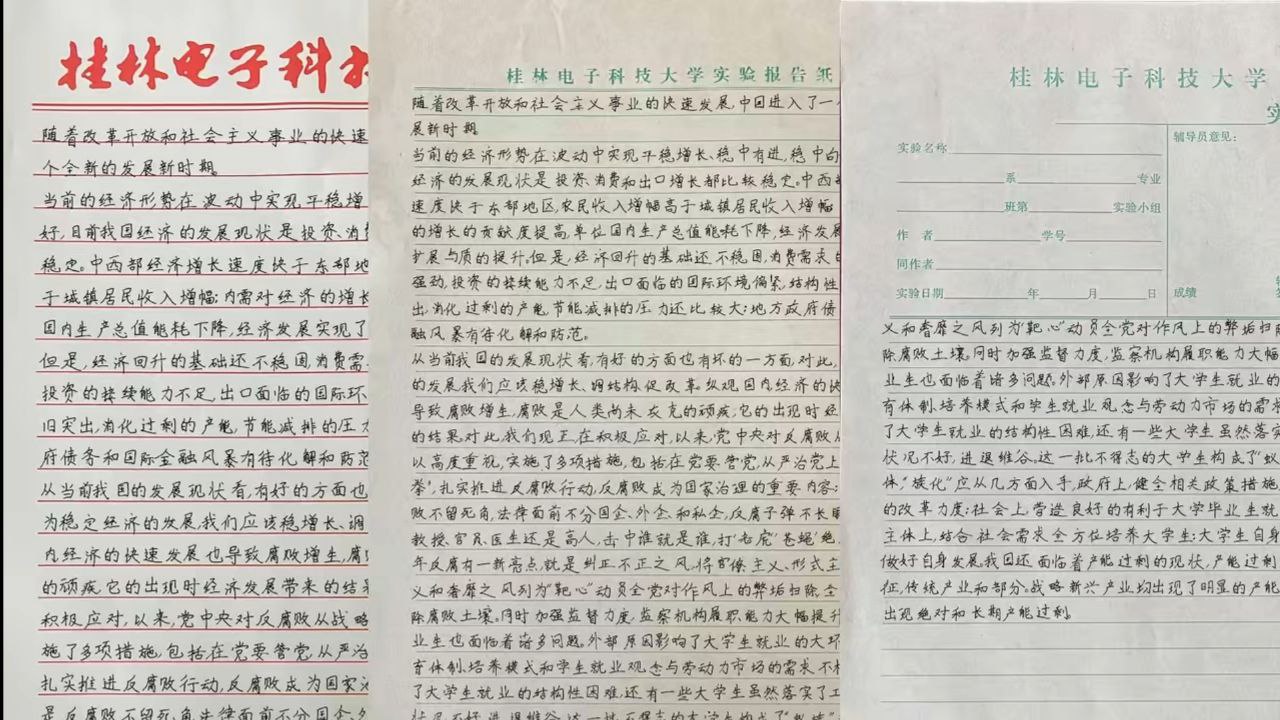 桂林电子科技
随着改革开放和社会主义事业的快速
个全新的发展新时期
当前的经济形势在波动中实现平稳增
好,目前我国经济的发展现状是投资、消费
稳定。中西部经济增长速度快于东部地
于城镇居民收入增幅;内需对经济的增长
国内生产总值能耗下降,经济发展实现了
但是,经济回升的基础还不稳固,消费需
投资的持续能力不足,出口面临的国际环
旧突出,消化过剩的产能,节能减排的压力
府债务和国际金融风暴有待化解和防范
从当前我国的发展现状看,有好的方面也
为稳定经济的发展,我们应该稳增长、调
内经济的快速发展也导致腐败增生,腐
的顽疾,它的出现时经济发展带来的结果
积极应对,以来,党中央对反腐败从战略
施了多项措施,包括在党要管党,从严治
扎实推进反腐败行动,反腐败成为国家治
是反腐败不留死角,法律面前不分国企、外
桂林电子科技大学实验报告纸
随着改革开放和社会主义事业的快速发展,中国进入了一
展新时期
当前的经济形势在波动中实现平稳增长、稳中有进,稳中向
经济的发展现状是投资、消费和出口增长都比较稳定。中西部
速度快于东部地区,农民收入增幅高于城镇居民收入增幅
的增长的贡献度提高,单位国内生产总值能耗下降,经济发展
扩展与质的提升。但是,经济回升的基础还不稳固,消费需求
强劲,投资的持续能力不足,出口面临的国际环境偏紧,结构性
出,消化过剩的产能,节能减排的压力还比较大;地方政府债
融风暴有待化解和防范。
从当前我国的发展现状看,有好的方面也有坏的一方面,对此,
的发展我们应该稳增长、调结构、促改革,纵观国内经济的快
导致腐败增生,腐败是人类尚未攻克的顽疾,它的出现时经
的结果,对此,我们现正在积极应对,以来,党中央对反腐败从
以高度重视,实施了多项措施,包括在党要管党,从严治党上
举",扎实推进反腐败行动,反腐败成为国家治理的重要内容;
败不留死角,法律面前不分国企、外企、和私企,反腐子弹不长眼
教授、官员、医生还是高人,击中谁就是谁,打"老虎""苍蝇"绝
年反腐有一新亮点,就是纠正不正之风,将官僚主义、形式主
义和奢靡之风列为"靶心"动员全党对作风上的弊垢扫除,全
除腐败土壤。同时加强监督力度,监察机构履职能力大幅提升
业生也面临着诸多问题。外部原因影响了大学生就业的大环
育体制、培养模式和学生就业观念与劳动力市场的需求不相
了大学生就业的结构性困难,还有一些大学生虽然落实了工
状况不好,进退维谷,这一批不得志的大学生构成了"蚁族"
桂林电子科技大学
实
实验名称
辅导员意见:
系 专业
班第 实验小组
作 者 学号
同作者
实验日期 年 月 日 成绩
义和奢靡之风列为"靶心"动员全党对作风上的弊垢扫
除腐败土壤。同时加强监督力度,监察机构履职能力大幅
业生也面临着诸多问题。外部原因影响了大学生就业的
育体制、培养模式和学生就业观念与劳动力市场的需求
了大学生就业的结构性困难,还有一些大学生虽然落实
状况不好,进退维谷。这一批不得志的大学生构成了"蚁
体,"蚁化"应从几方面入手,政府上,健全相关政策措施,
的改革力度;社会上,营造良好的有利于大学毕业生就
主体上,结合社会需求全方位培养大学生;大学生自身
做好自身发展,我国还面临着产能过剩的现状,产能过剩
征,传统产业和部分。战略新兴产业均出现了明显的产能
出现绝对和长期产能过剩。